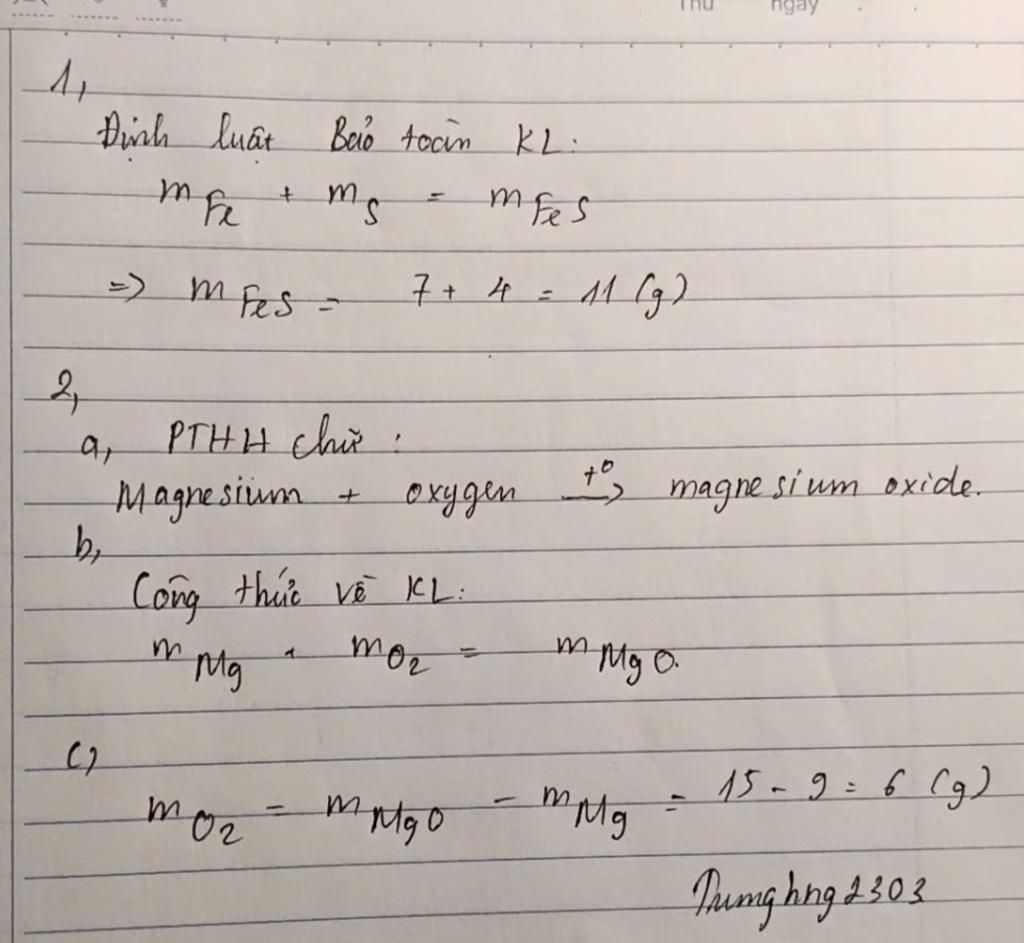 Thứ ngày
1,
Định luật Bảo toàn KL:
m Fe + m S = m FeS
=> m FeS = 7 + 4 = 11 (g)
2,
a, PTHH chữ :
Magnesium + oxygen t° → magnesium oxide.
b,
Công thức về KL:
m Mg + m O2 = m MgO.
c)
m O2 = m MgO - m Mg = 15 - 9 = 6 (g)